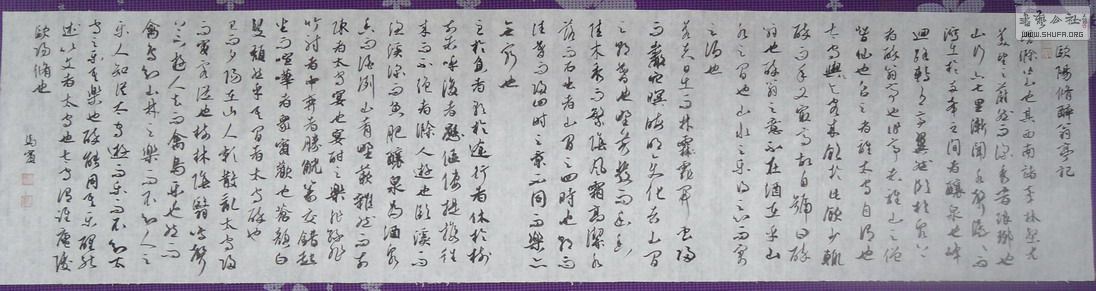 歐陽修醉翁亭記
環滁皆山也其西南諸峰林壑尤
美望之蔚然而深秀者瑯琊也
山行六七里漸聞水聲潺潺而
瀉出於兩峰之間者釀泉也峰
迴路轉有亭翼然臨於泉上
者醉翁亭也作亭者誰山之僧
智仙也名之者誰太守自謂也
太守與客來飲於此飲少輒
醉而年又最高故自號曰醉
翁也醉翁之意不在酒在乎山
水之間也山水之樂得之心而寓
之酒也
若夫日出而林霏開雲歸
而巖穴暝晦明變化者山間
之朝暮也野芳發而幽香
佳木秀而繁陰風霜高潔水
落而石出者山間之四時也朝而
往暮而歸四時之景不同而樂亦
無窮也
至於負者歌於途行者休於樹
前者呼後者應傴僂提攜往
來而不絕者滁人遊也臨溪而
漁溪深而魚肥釀泉為酒泉
香而酒洌山肴野蔌雜然而前
陳者太守宴也宴酣之樂非絲非
竹射者中弈者勝觥籌交錯起
坐而喧嘩者眾賓歡也蒼顏白
髮頹然乎其間者太守醉也
已而夕陽在山人影散亂太守歸
而賓客從也樹林陰翳鳴聲
上下遊人去而禽鳥樂也然而
禽鳥知山林之樂而不知人之
樂人知從太守遊而樂而不知太
守之樂其樂也醉能同其樂醒能
述以文者太守也太守謂誰廬陵
歐陽脩也
WWW.SHUFA.ORG